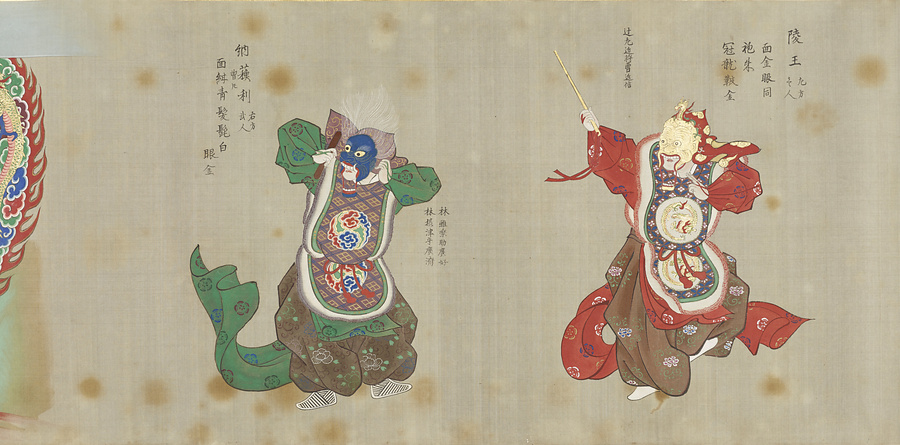 陵王 左方 壱人
面金眼同
袍朱
冠龍靫金
辻左近将曹近信
林雅楽助廣好
林摂津守廣済
納蘓利 右方 弐人
面紺青髪髭白
眼金